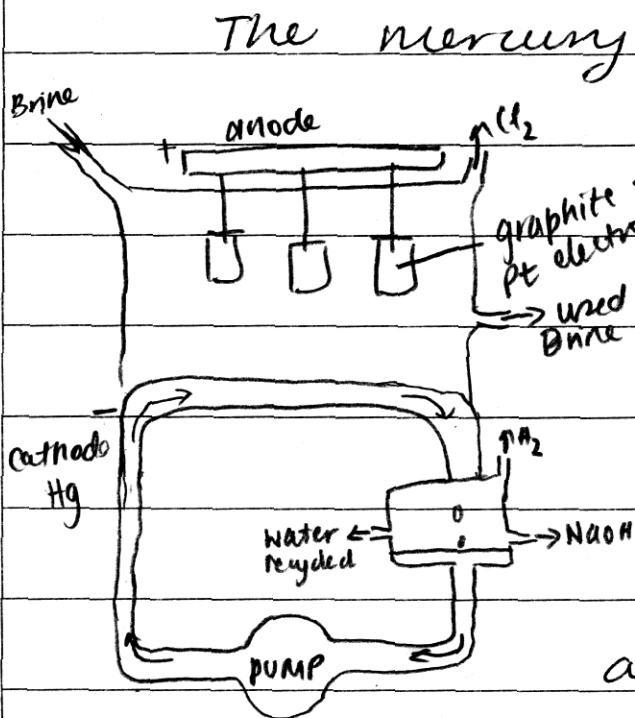 The mercury
Brine
anode
+
↑Cl₂
graphite
Pt electro
→ used
Brine
−
Cathode
Hg
↑H₂
water ←
recycled
→ NaOH
PUMP
a